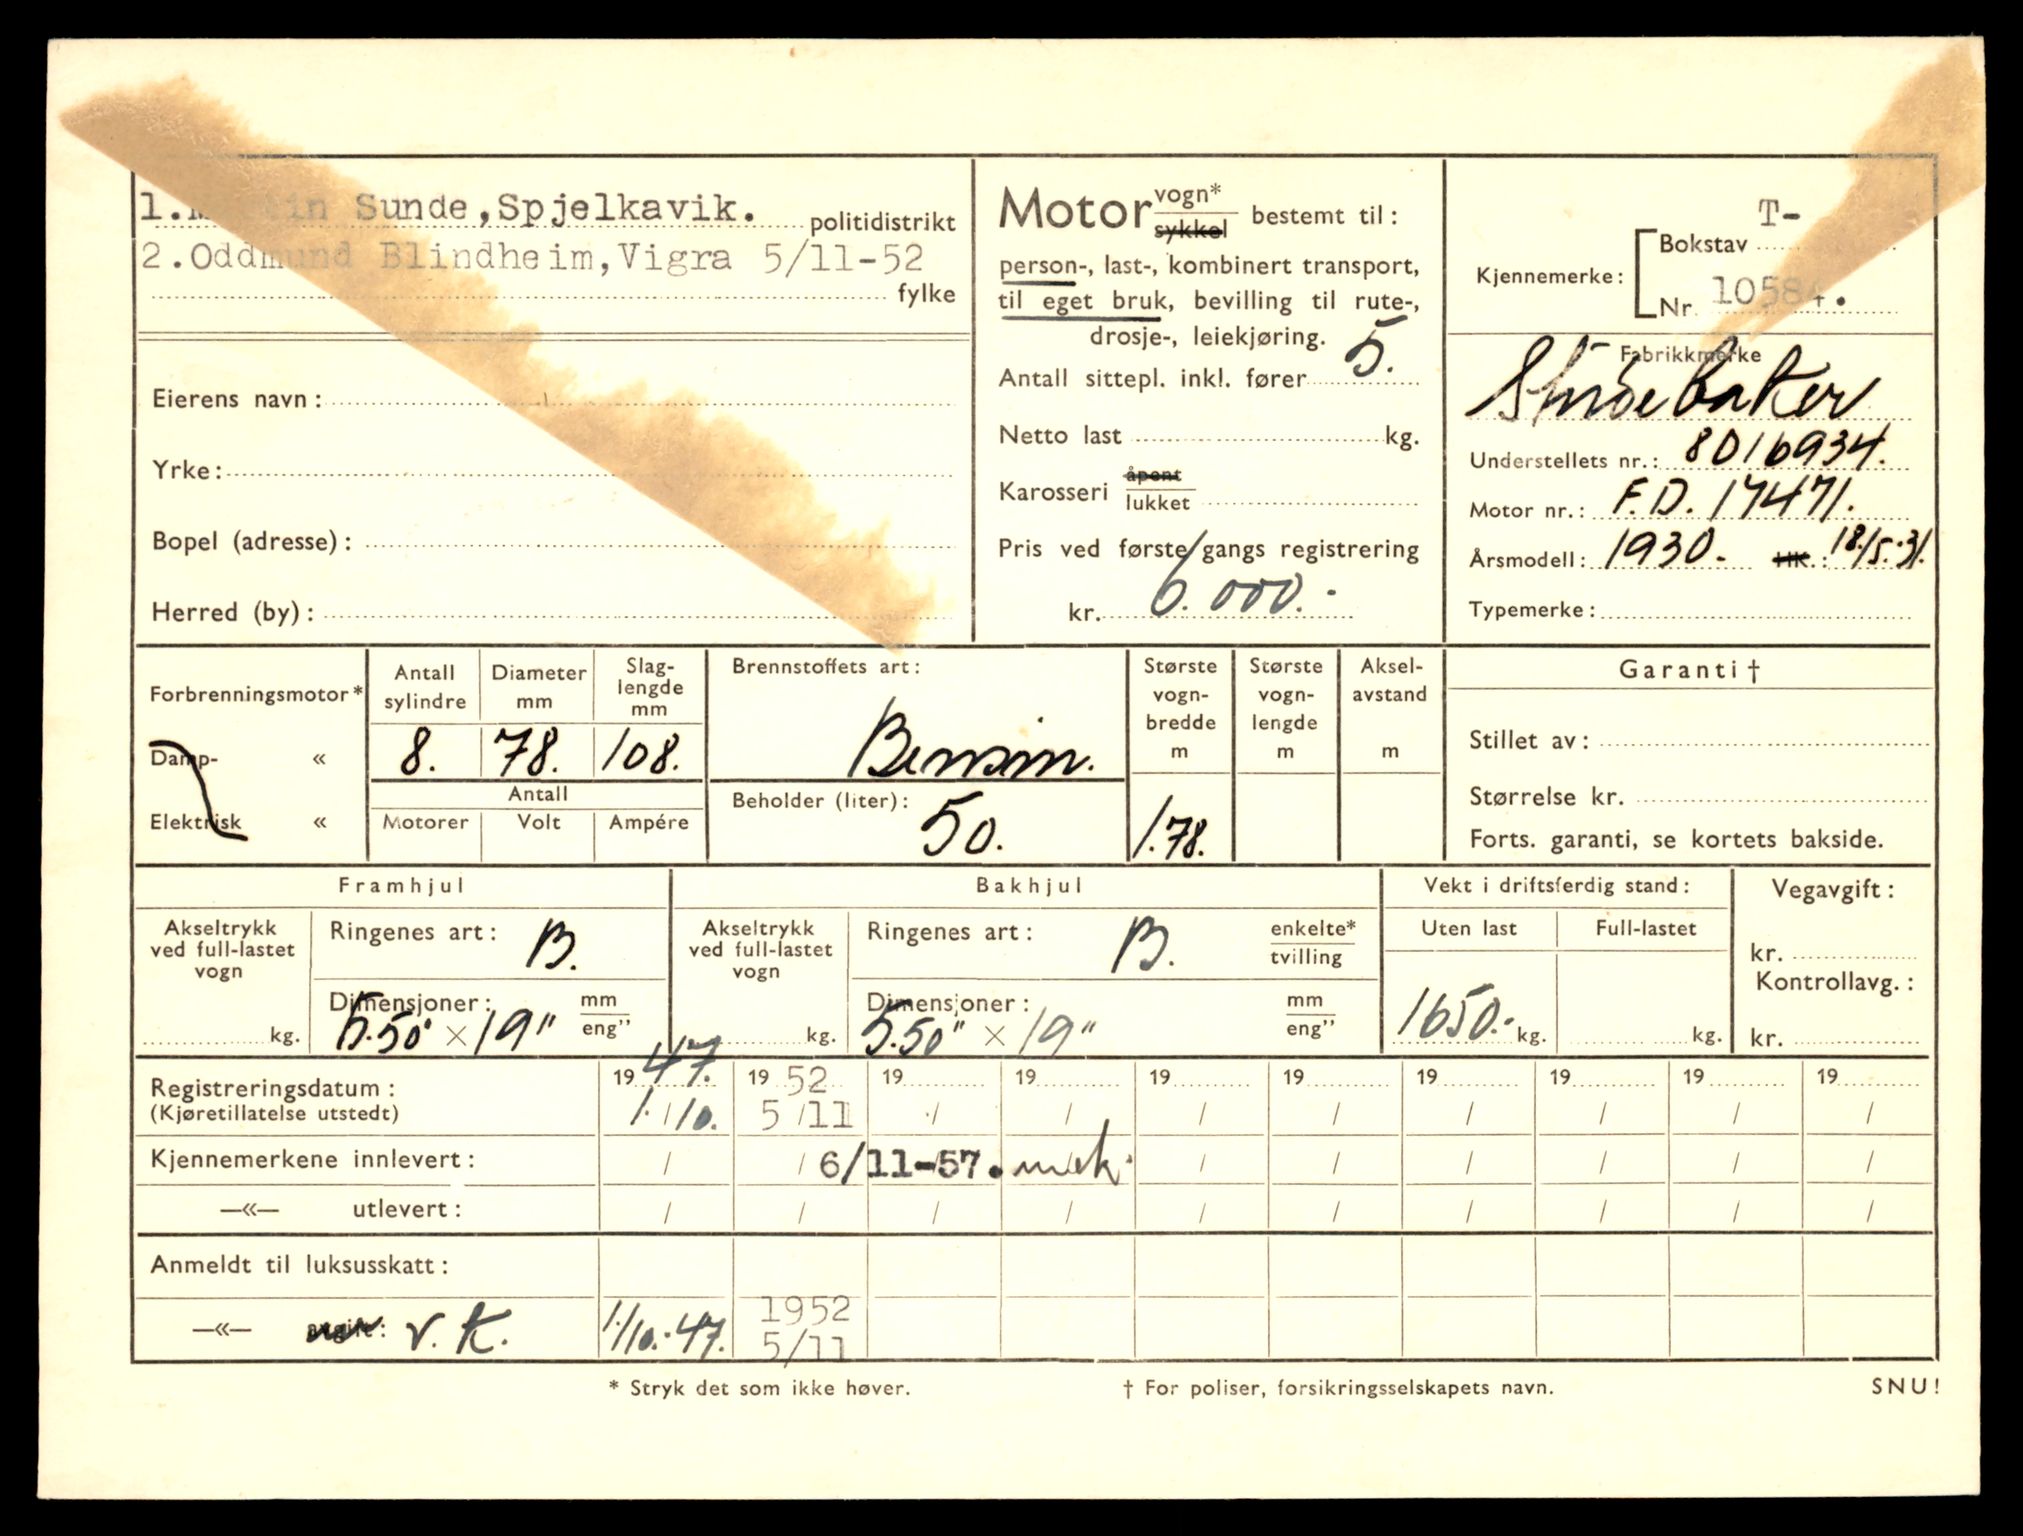 1. Martin Sunde, Spjelkavik. politidistrikt
2. Oddmund Blindheim, Vigra 5/11-52
fylke
Eierens navn:
Yrke:
Bopel (adresse):
Herred (by):
Motor vogn* / sykkel bestemt til:
person-, last-, kombinert transport,
til eget bruk, bevilling til rute-,
drosje-, leiekjøring.
Antall sittepl. inkl. fører 5.
Netto last kg.
Karosseri åpent / lukket
Pris ved første gangs registrering
kr. 6.000.-
Kjennemerke: Bokstav T-
Nr. 10584.
Fabrikkmerke
Studebaker
Understellets nr.: 8016934.
Motor nr.: F.D. 17471.
Årsmodell: 1930.- HK.: 18/5.31.
Typemerke:
Forbrenningsmotor*
Damp- «
Elektrisk «
Antall sylindre
8.
Diameter mm
78.
Slag-lengde mm
108.
Antall
Motorer Volt Ampére
Brennstoffets art:
Bensin.
Beholder (liter):
50.
Største vogn-bredde m
1.78.
Største vogn-lengde m
Aksel-avstand m
Garanti †
Stillet av:
Størrelse kr.
Forts. garanti, se kortets bakside.
Framhjul
Akseltrykk ved full-lastet vogn
kg.
Ringenes art: B.
Dimensjoner: mm / eng”
5.50" × 19"
Bakhjul
Akseltrykk ved full-lastet vogn
kg.
Ringenes art: B. enkelte* / tvilling
Dimensjoner: mm / eng”
5.50" × 19"
Vekt i driftsferdig stand:
Uten last Full-lastet
1650.- kg. kg.
Vegavgift:
kr.
Kontrollavg.:
kr.
Registreringsdatum: 19 47. 19 52 19 19 19 19 19 19 19 19
(Kjøretillatelse utstedt) 1./10. 5/11 / / / / / / / /
Kjennemerkene innlevert: / / 6/11-57. mek. / / / / / /
—«— utlevert: / / / / / / / / / /
Anmeldt til luksusskatt:
—«— avgift: v.k. 1/10.-47. 1952 5/11
* Stryk det som ikke høver. † For poliser, forsikringsselskapets navn. SNU!